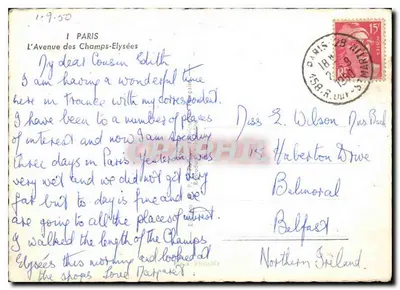 1-9-50
1 PARIS
L'Avenue des Champs-Elysées
My dear Cousin Edith
I am having a wonderful time
here in France with my correspondent.
I have been to a number of places
of interest and now I am spending
three days in Paris. Yesterday was
very wet and we did not get very
far but to day is fine and we
are going to all the places of interest.
I walked the length of the Champs
Elysées this morning and looked at
the shops. Love Margaret.
15F
PARIS
Miss E. Wilson
Haberton Drive
Balmoral
Belfast
Northern Ireland.